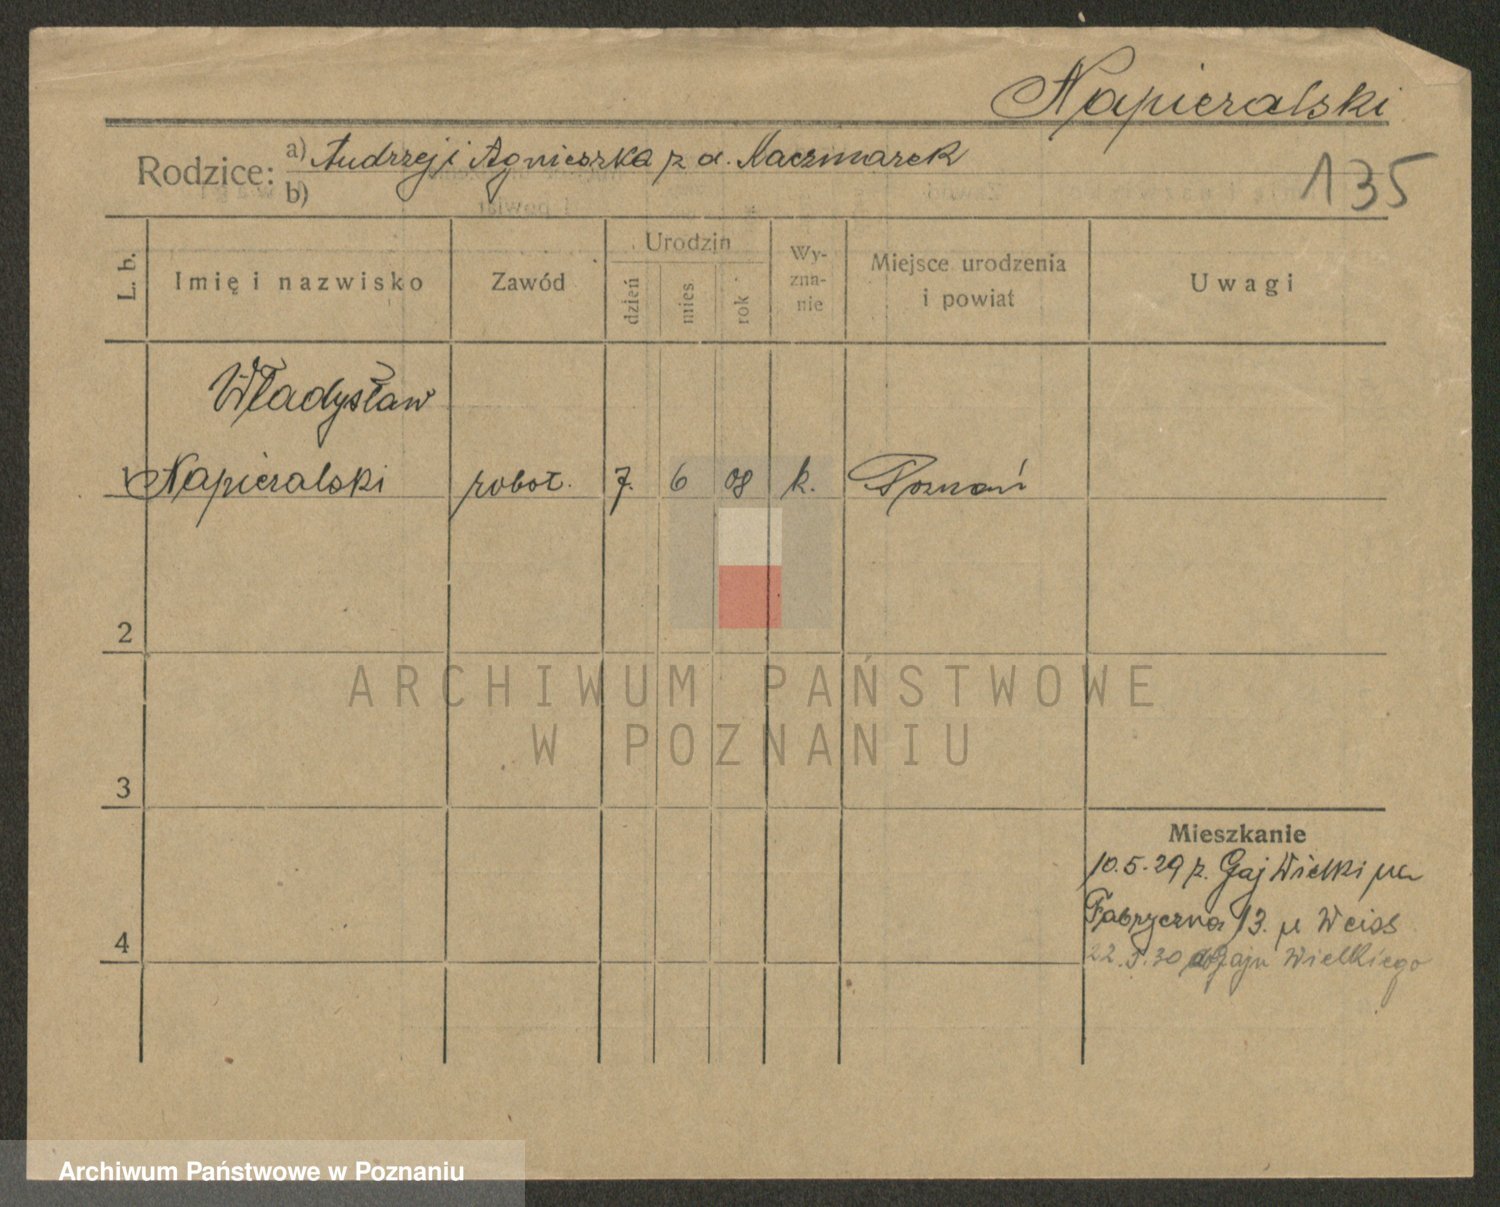 Napieralski
Rodzice: a) Andrzej i Agnieszka z d. Kaczmarek
b)
135
L. b.
Imię i nazwisko
Zawód
Urodzin
dzień
mies
rok
Wy-
zna-
nie
Miejsce urodzenia
i powiat
Uwagi
Władysław
1 Napieralski robot. 7. 6 08 k. Poznań
2
3
4
Mieszkanie
10.5.29 z. Gaj Wielki na
Fabryczna 13. u Weiss
22.5.30 do Gaju Wielkiego
ARCHIWUM PAŃSTWOWE
W POZNANIU
Archiwum Państwowe w Poznaniu